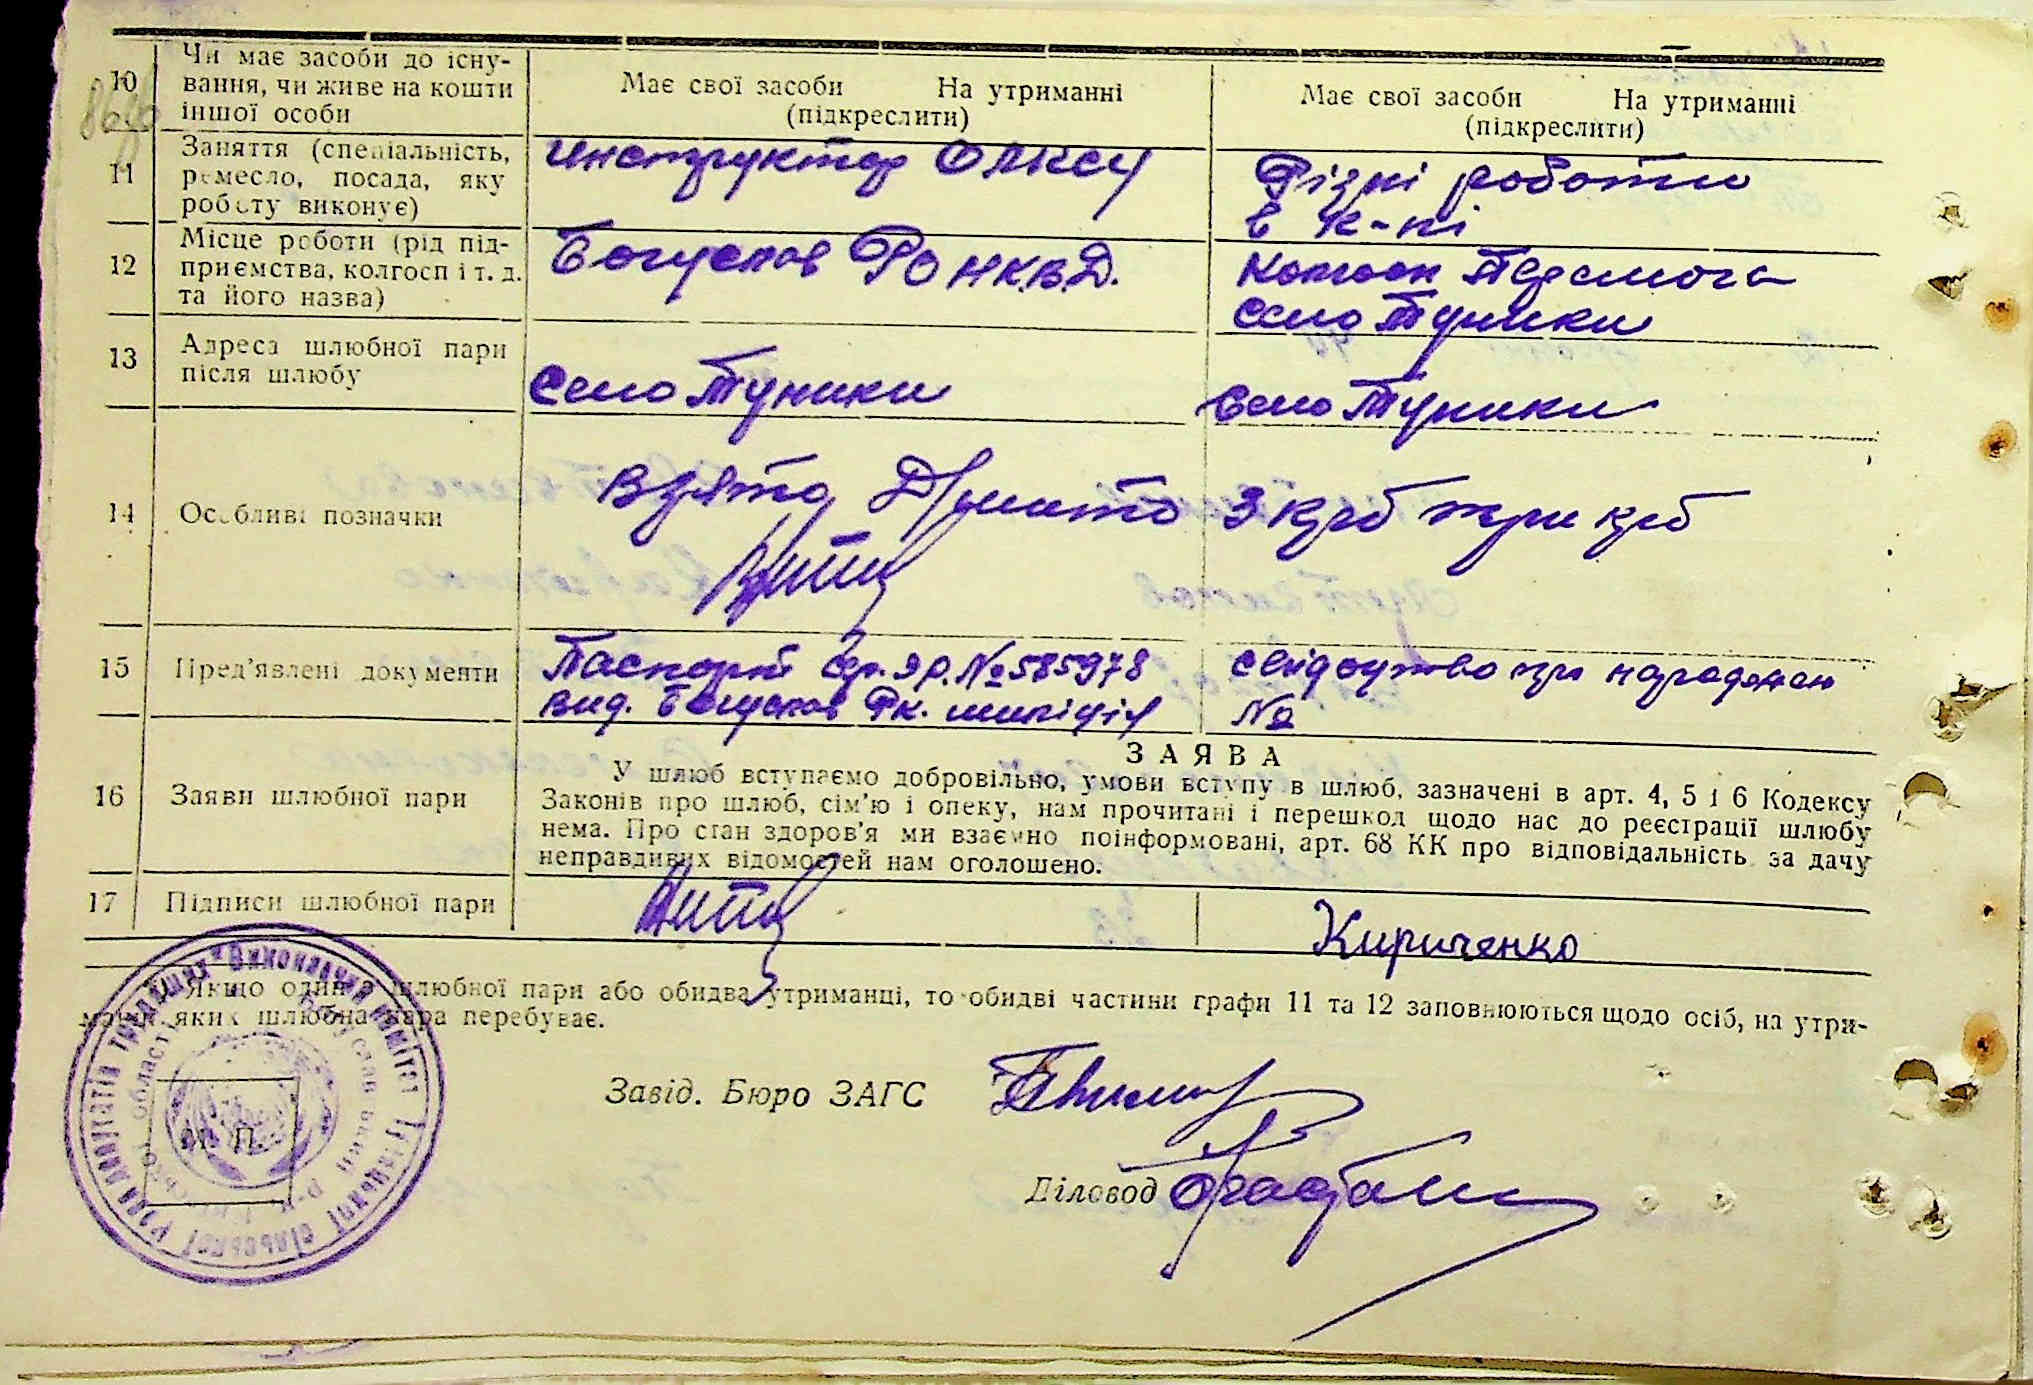 10
Чи має засоби до існу-
вання, чи живе на кошти
іншої особи
Має свої засоби На утриманні
(підкреслити)
Має свої засоби На утриманні
(підкреслити)
11
Заняття (спеціальність,
ремесло, посада, яку
роботу виконує)
Инструктор
Різні роботи
в к-пі
12
Місце роботи (рід під-
приємства, колгосп і т. д.
та його назва)
Богуслав РО НКВД.
Колгосп Перемога
село Туники
13
Адреса шлюбної пари
після шлюбу
село Туники
село Туники
14
Особливі позначки
Взято 3 крб три крб
15
Пред'явлені документи
Паспорт № 585978
вид. Богуслав Рк. міліцією
свідоцтво про народжен
№
16
Заяви шлюбної пари
ЗАЯВА
У шлюб вступаємо добровільно, умови вступу в шлюб, зазначені в арт. 4, 5 і 6 Кодексу
Законів про шлюб, сім'ю і опеку, нам прочитані і перешкод щодо нас до реєстрації шлюбу
нема. Про стан здоров'я ми взаємно поінформовані, арт. 68 КК про відповідальність за дачу
неправдивих відомостей нам оголошено.
17
Підписи шлюбної пари
Кириченко
Якщо один з шлюбної пари або обидва утриманці, то обидві частини графи 11 та 12 заповнюються щодо осіб, на утри-
манні яких шлюбна пара перебуває.
Завід. Бюро ЗАГС
Діловод
М. П.
Виконавчий комітет сільської Ради депутатів трудящих